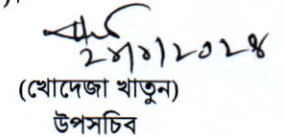 ২৮/০১/২০২৪
(খোদেজা খাতুন)
উপসচিব